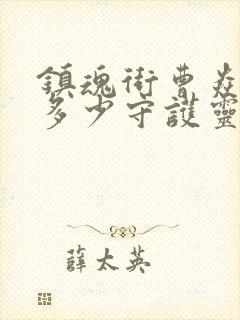 鎮魂街曹焱
多少守護靈
薛太英